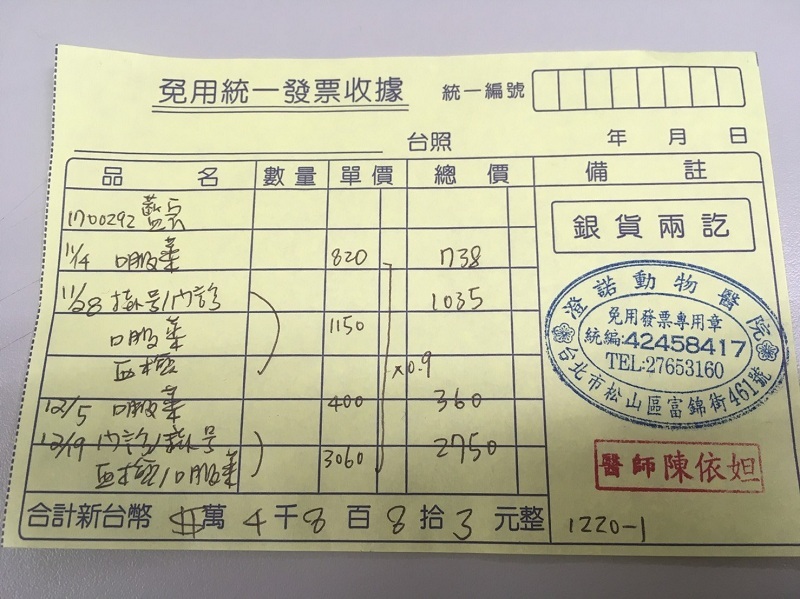 免用統一發票收據
統一編號
台照 年 月 日
品 名 數量 單價 總價 備註
1700292 藍雲
11/4 口服藥 820 738
11/28 掛號/內診 1035
口服藥 1150
血檢
x0.9
12/5 口服藥 400 360
12/19 內診/掛號 2750
血檢/口服藥 3060
合計新台幣 萬 4 千 8 百 8 拾 3 元整
銀貨兩訖
澄諾動物醫院
免用發票專用章
統編:42458417
TEL:27653160
台北市松山區富錦街461號
醫師陳依妲
1220-1